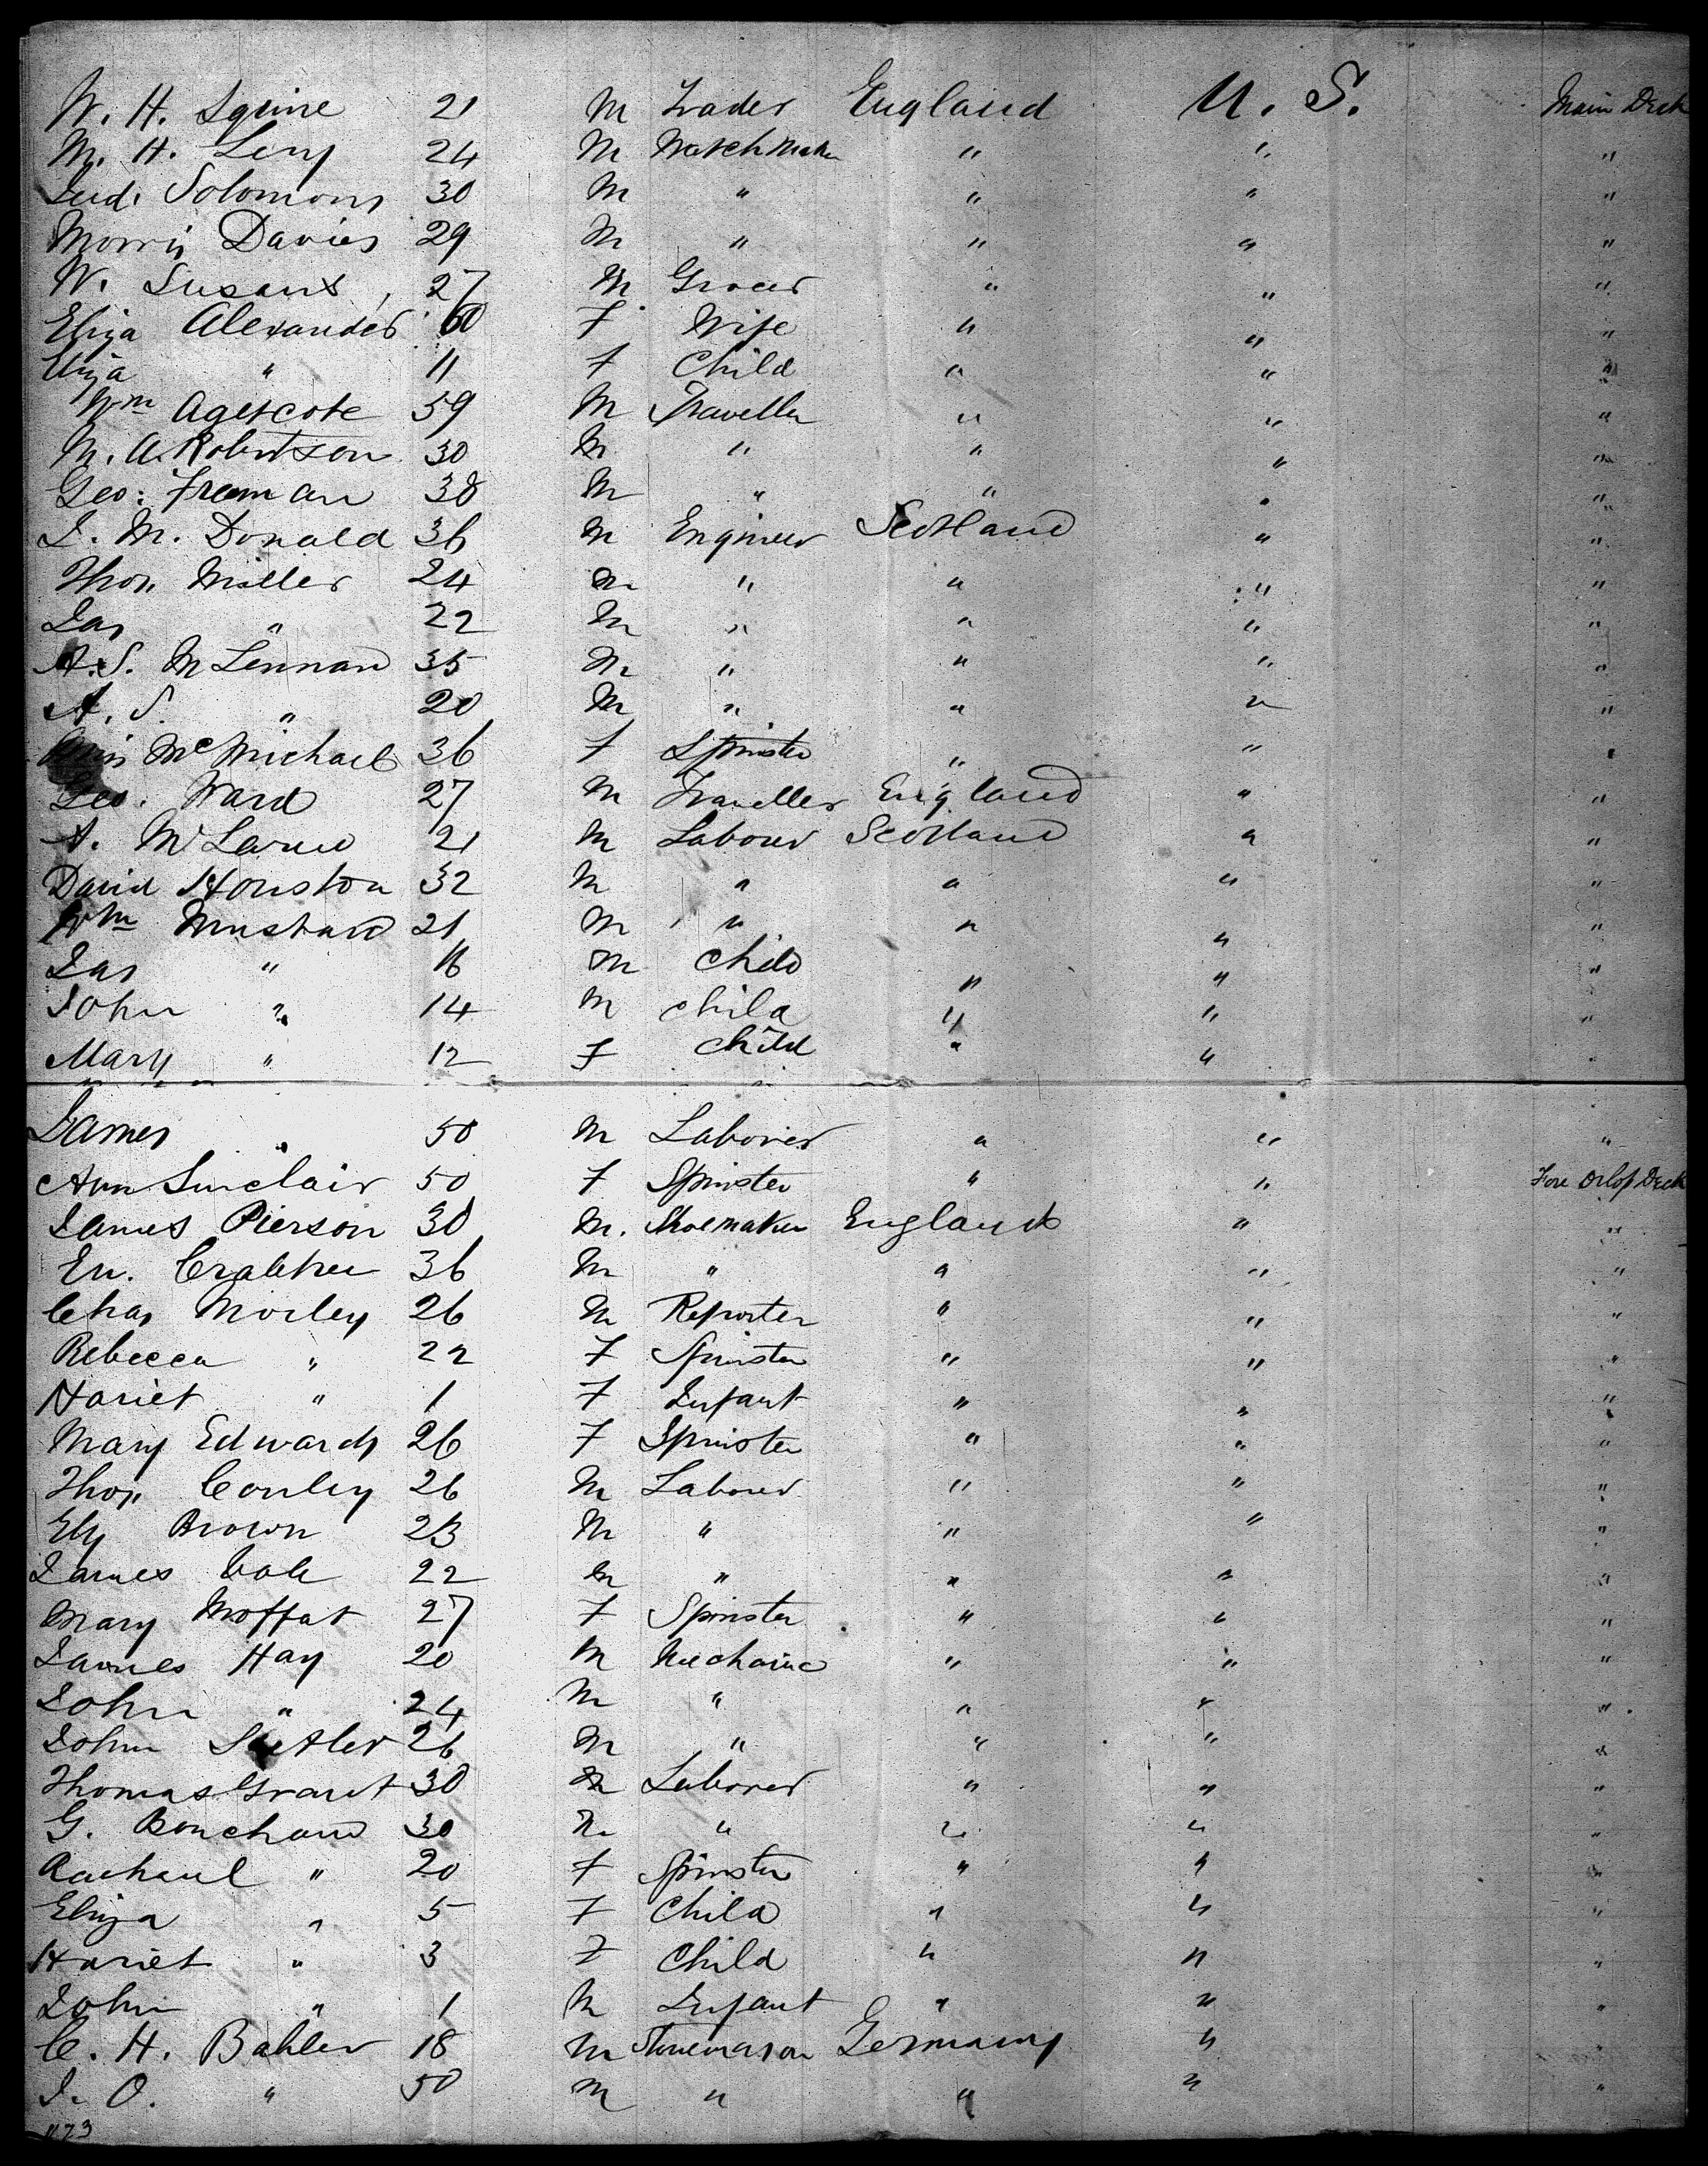 W. H. Squire 21 M Trader England U. S. Main Deck
M. H. Levy 24 M Watchmaker " " "
Jud. Solomons 30 M " " " "
Morris Davies 29 M " " " "
W. Susans 27 M Grocer " " "
Eliza Alexander 60 F Wife " " "
Eliza " 11 F Child " " "
Wm Agetcote 59 M Traveller " " "
M. A. Robertson 30 M " " " "
Geo: Freeman 38 M " " " "
J. M. Donald 36 M Engineer Scotland " "
Thos Miller 24 M " " " "
Jas " 22 M " " " "
A. S. McLennan 35 M " " " "
A. S. " 20 M " " " "
McMichael 36 F Spinster " " "
Geo. Ward 27 M Traveller England " "
A. McLaren 21 M Labour Scotland " "
David Houston 32 M " " " "
Wm Mustard 21 M " " " "
Jas " 16 M Child " " "
John " 14 M Child " " "
Mary " 12 F Child " " "
James " 50 M Laborer " " "
Ann Sinclair 50 F Spinster " " Fore Orlop Deck
James Pierson 30 M. Shoemaker England " "
En. Crabtree 36 M " " " "
Chas Morley 26 M Reporter " " "
Rebecca " 22 F Spinster " " "
Hariet " 1 F Infant " " "
Mary Edwards 26 F Spinster " " "
Thos Conley 26 M Labourer " " "
Ely Brown 23 M " " " "
James Cole 22 M " " " "
Mary Moffat 27 F Spinster " " "
James Hay 20 M Mechanic " " "
John " 24 M " " " "
John 26 M " " " "
Thomas Grant 30 M Laborer " " "
G. Bouchard 30 M " " " "
Rachael " 20 F Spinster " " "
Eliza " 5 F Child " " "
Hariet " 3 F Child " " "
John " 1 M Infant " " "
C. H. Bahler 18 M Stonemason Germany " "
J. O. " 50 M " " " "